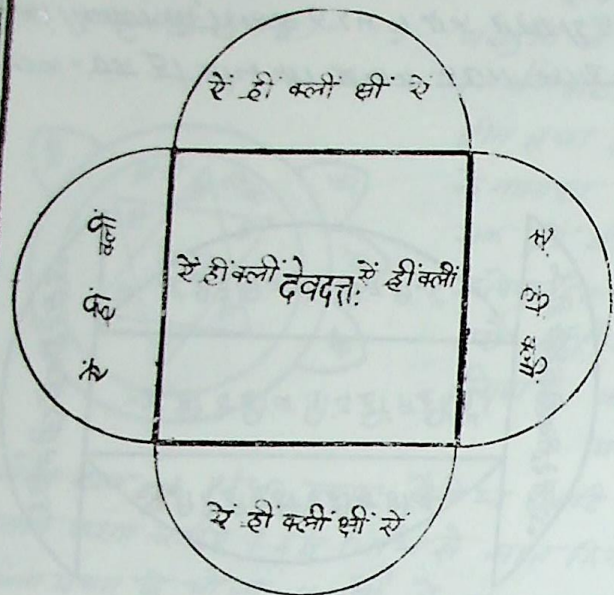 ऐं ह्रीं क्लीं क्षीं ऐं
ऐं ह्रीं क्लीं
ऐं ह्रीं क्लीं देवदत्तः ऐं ह्रीं क्लीं
ऐं ह्रीं क्लीं
ऐं ह्रीं क्लीं क्षीं ऐं